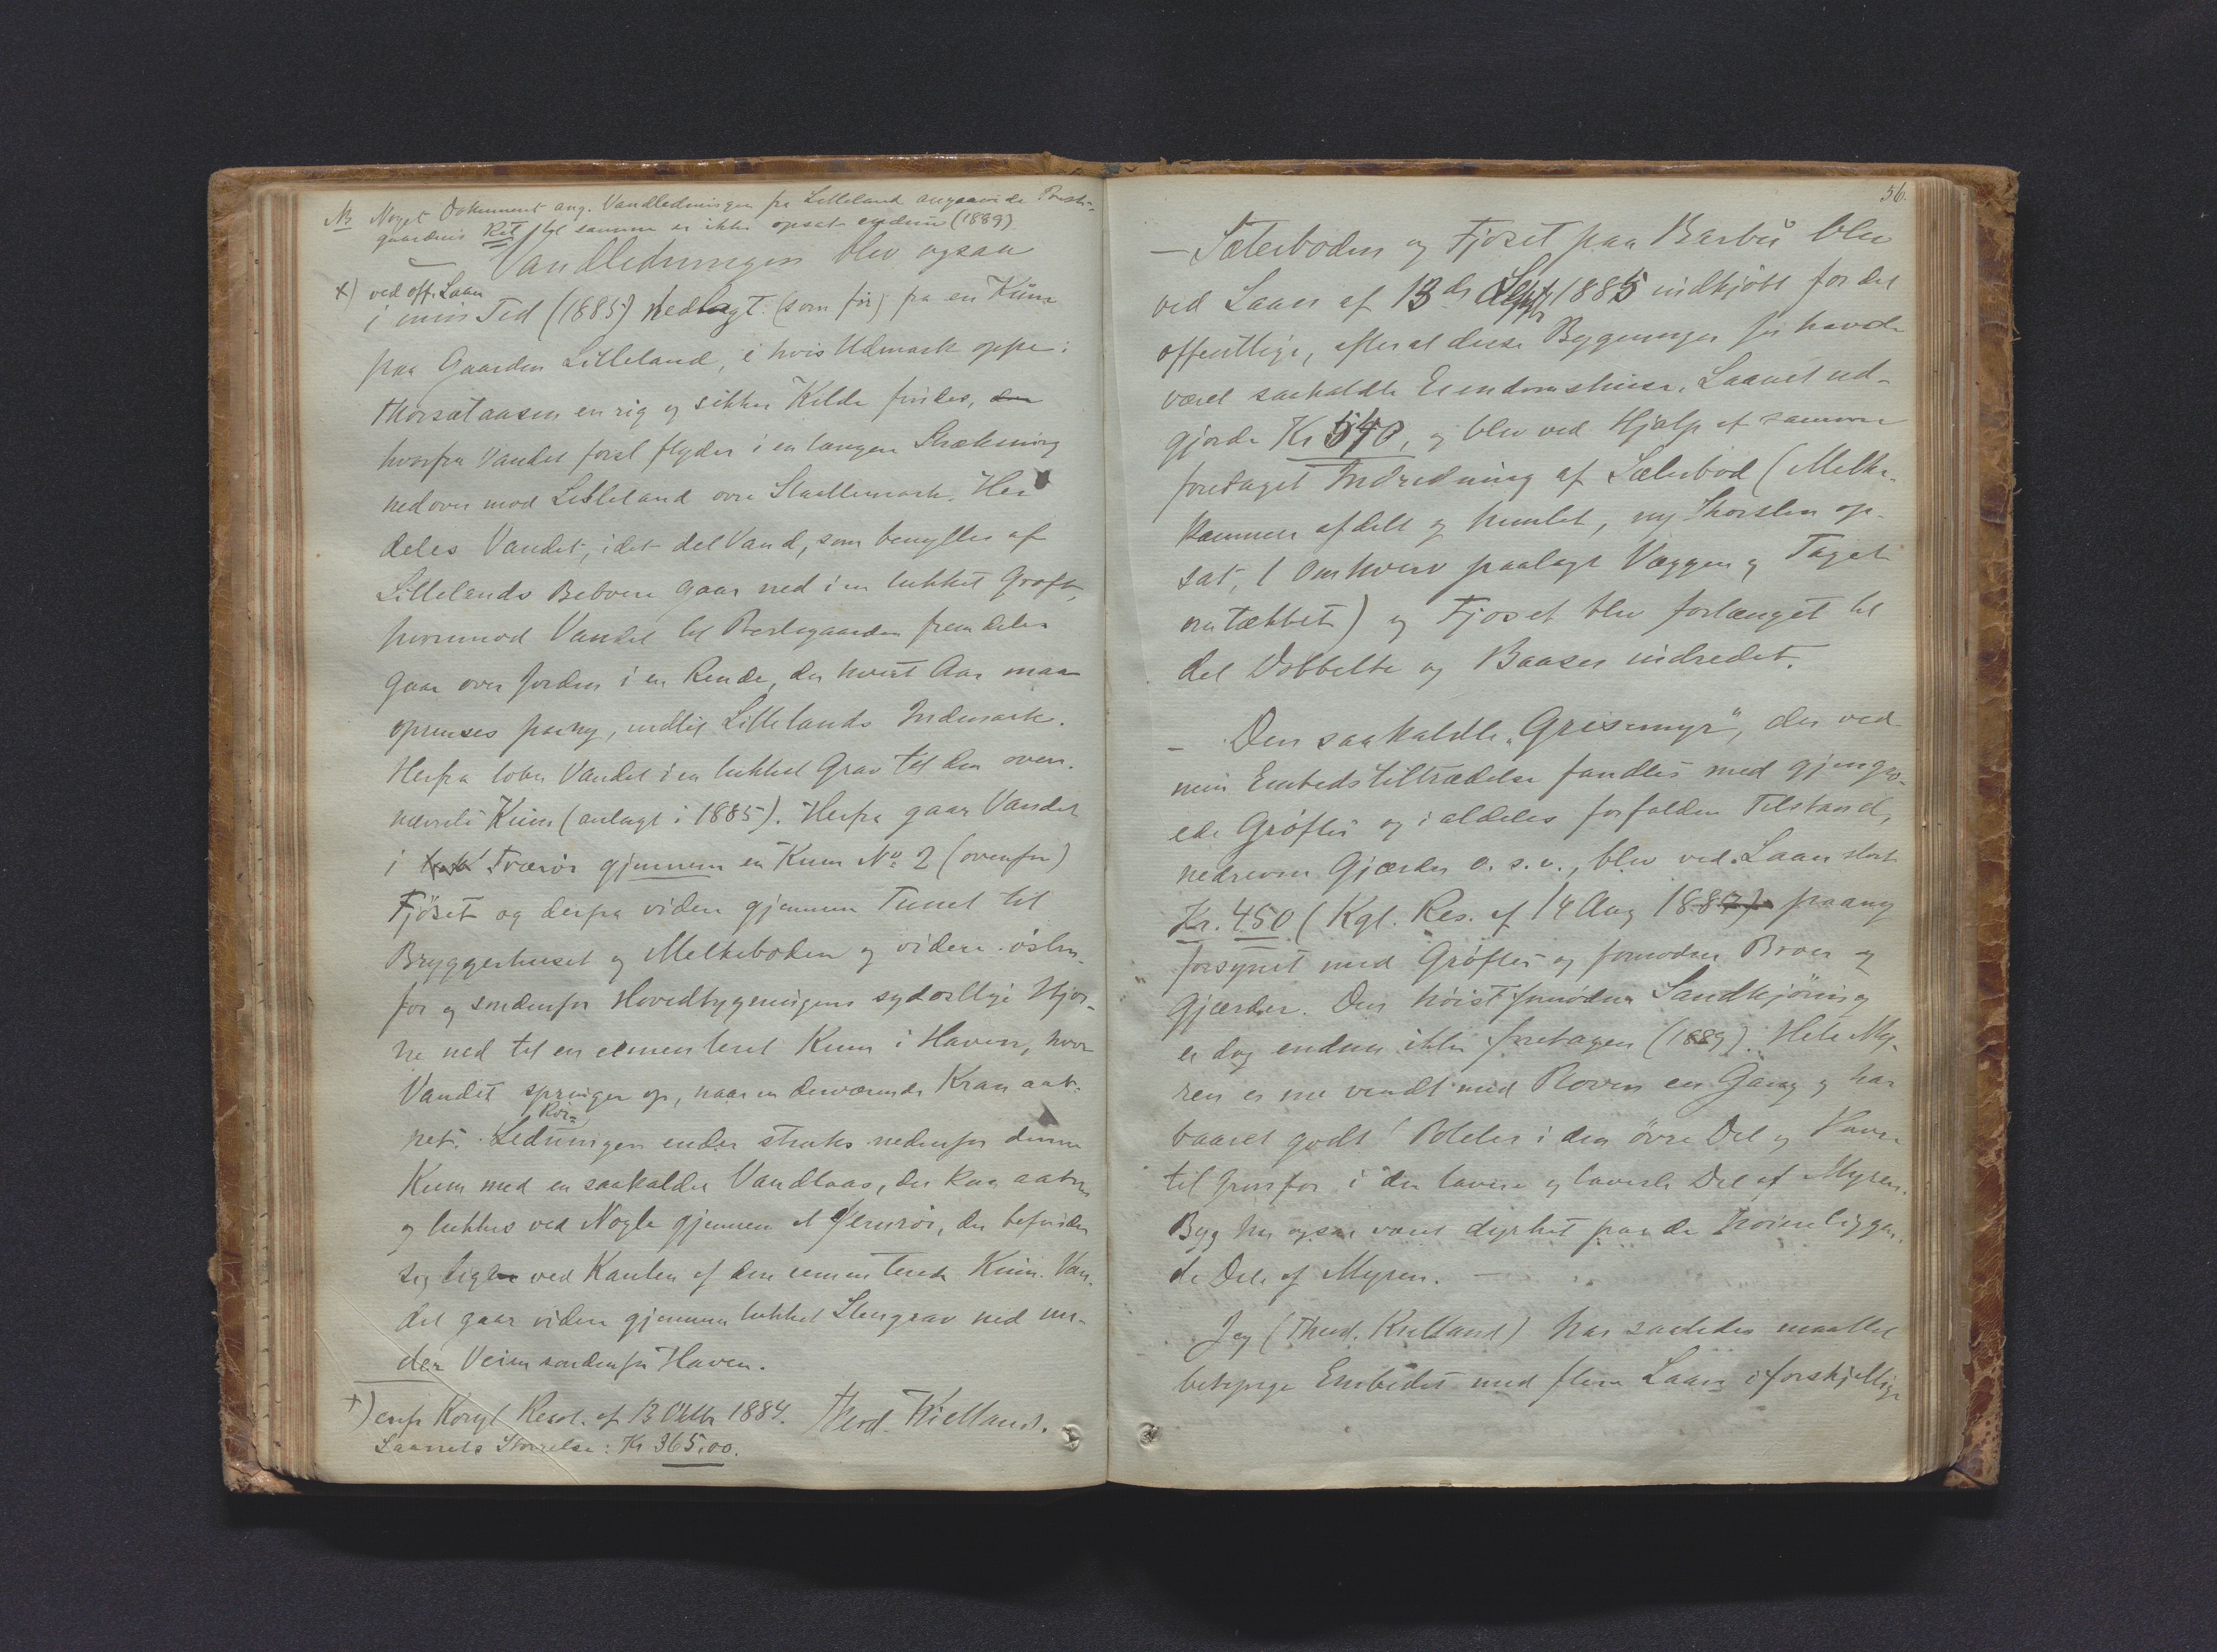 NB Noget Dokument ang. Vandledningen fra Lilleland angaaende Prest-
gaardens Ret til samme er ikke opsat endnu (1889)
— Vandledningen blev ogsaa
x) ved off. Laan
i min Tid (1885) nedlagt (som før) fra en Kum
paa Gaarden Lilleland, i hvis Udmark oppe i
Thorsætaasen en rig og sikker Kilde findes,
hvorfra Vandet først flyder i en længere Strækning
nedover mod Lilleland ovre Slaattemark. Her
deles Vandet, idet det Vand, som benyttes af
Lillelands Beboere gaar ned i en lukket Grøft,
hvorimod Vandet til Prestegaarden fremdeles
gaar over Jorden i en Rende, der hvert Aar maa
oprenses paany, indtil Lillelands Indmark.
Herfra løber Vandet i en lukket Grav til den oven-
nævnte Kum (anlagt i 1885). Herfra gaar Vandet
i Trærør gjennem en Kum No 2 (ovenfor)
Fjøset og derfra videre gjennem Tunet til
Bryggerhuset og Melkeboden og videre østen-
for og søndenfor Hovedbygningens sydøstlige Hjør-
ne ned til en cementeret Kum i Haven, hvor
Vandet springer op, naar en derværende Kran aab-
nes. Rør-
Ledningen ender straks nedenfor denne
Kum med en saakaldet Vandlaas, der kan aabnes
og lukkes ved Nøgle gjennem et Jernrør, der befinder
sig lige ved Kanten af den cementerede Kum. Van-
det gaar videre gjennem lukket Stengrav ned un-
der Veien søndenfor Haven.
x) cnfr Kongl Resol. af 13 Oktbr 1884. Theod. Kielland.
Laanets Størrelse: Kr 365,00.
56.
— Sæterboden og Fjøset paa Barbu blev
ved Laan af 13de Septbr 1885 indkjøbt for det
offentlige, efterat disse Bygninger før havde
været saakaldte Eiendomshuse. Laanet ud-
gjorde Kr 540, og blev ved Hjælp af samme
foretaget Indredning af Sæterbod (Melke-
kammer afdelt og himlet, ny Skorsten op-
sat, 1 Omhverv paalagt Væggen og Taget
omtækket) og Fjøset blev forlænget til
det Dobbelte og Baaser indredet.
— Den saakaldte „Grisemyr", der ved
min Embedstiltrædelse fandtes med gjengro-
ede Grøfter og i aldeles forfalden Tilstand,
nedrevne Gjærder o. s. v., blev ved Laan stort
Kr. 450 (Kgl. Res. af 14 Aug 1887) paany
forsynet med Grøfter og fornødne Broer og
Gjærder. Den høist fornødne Sandkjøring
er dog endnu ikke foretagen (1889). Hele My-
ren er nu vendt med Ploven en Gang og har
baaret godt! Poteter i den øvre Del og Havre
til Grønfor i den lavere og laveste Del af Myren.
Byg har ogsaa været dyrket paa de høiereliggen-
de Dele af Myren. —
Jeg (Theod. Kielland) har saaledes maattet
bebyrge Embedet med flere Laan i forskjellige